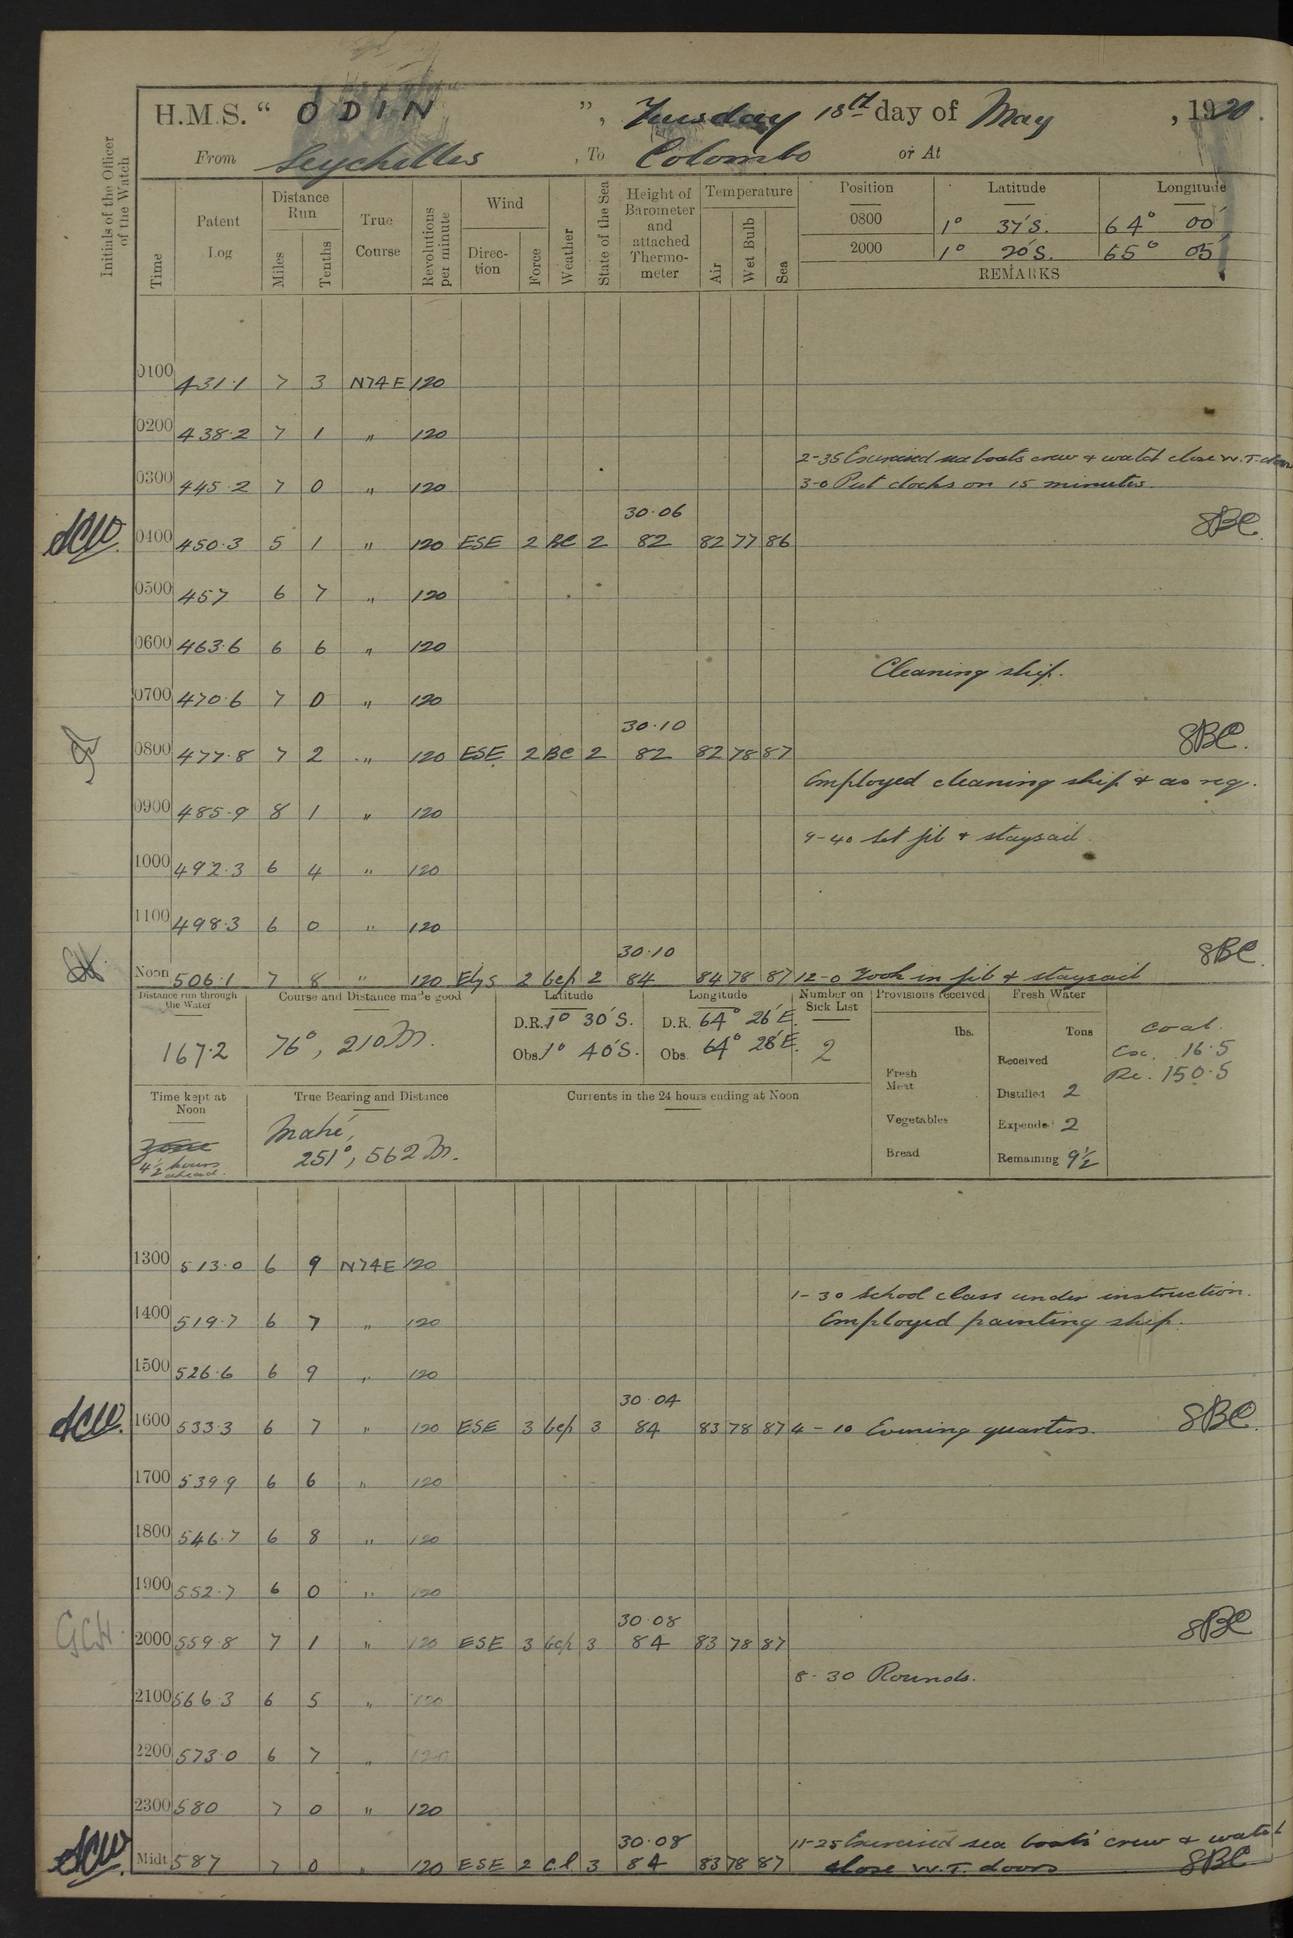 H.M.S. “ ODIN ”, Tuesday 18th day of May, 1920.
From Seychelles, To Colombo or At
Initials of the Officer of the Watch
Time
Patent Log
Distance Run
Miles
Tenths
True Course
Revolutions per minute
Wind
Direction
Force
Weather
State of the Sea
Height of Barometer and attached Thermometer
Temperature
Air
Wet Bulb
Sea
Position Latitude Longitude
0800 1° 37'S. 64° 00'
2000 1° 20'S. 65° 05'
REMARKS
0100 431.1 7 3 N74E 120
0200 438.2 7 1 " 120
2-35 Exercised sea boats crew & watch close W.T. doors
0300 445.2 7 0 " 120 3-0 Put clocks on 15 minutes.
30.06
0400 450.3 5 1 " 120 ESE 2 BC 2 82 82 77 86
0500 457 6 7 " 120
0600 463.6 6 6 " 120
Cleaning ship.
0700 470.6 7 0 " 120
30.10
0800 477.8 7 2 " 120 ESE 2 BC 2 82 82 78 87
Employed cleaning ship & as req.
0900 485.9 8 1 " 120
9-40 Set jib & staysail
1000 492.3 6 4 " 120
1100 498.3 6 0 " 120
30.10
Noon 506.1 7 8 " 120 Elys 2 bcp 2 84 84 78 87 12-0 Took in jib & staysail
Distance run through the Water
167.2
Course and Distance made good
76°, 210 M.
Latitude
D.R. 1° 30'S.
Obs. 1° 40'S.
Longitude
D.R. 64° 26'E.
Obs. 64° 28'E.
Number on Sick List
2
Provisions received
lbs.
Fresh Meat
Vegetables
Bread
Fresh Water
Tons
Received
Distilled 2
Expended 2
Remaining 9½
Coal.
Con. 16.5
Re. 150.5
Time kept at Noon
Zone
4½ hours ahead.
True Bearing and Distance
Mahé,
251°, 562 M.
Currents in the 24 hours ending at Noon
1300 513.0 6 9 N74E 120
1-30 School class under instruction.
1400 519.7 6 7 " 120 Employed painting ship.
1500 526.6 6 9 " 120
30.04
1600 533.3 6 7 " 120 ESE 3 bcp 3 84 83 78 87 4-10 Evening quarters.
1700 539.9 6 6 " 120
1800 546.7 6 8 " 120
1900 552.7 6 0 " 120
GCH
30.08
2000 559.8 7 1 " 120 ESE 3 bcp 3 84 83 78 87
8-30 Rounds.
2100 566.3 6 5 " 120
2200 573.0 6 7 " 120
2300 580 7 0 " 120
30.08 11-25 Exercised sea boats' crew & watch
Midt 587 7 0 " 120 ESE 2 cl 3 84 83 78 87 close W.T. doors